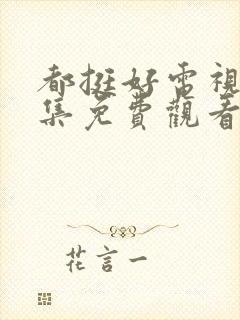 都挺好電視
集免費觀看
花言一